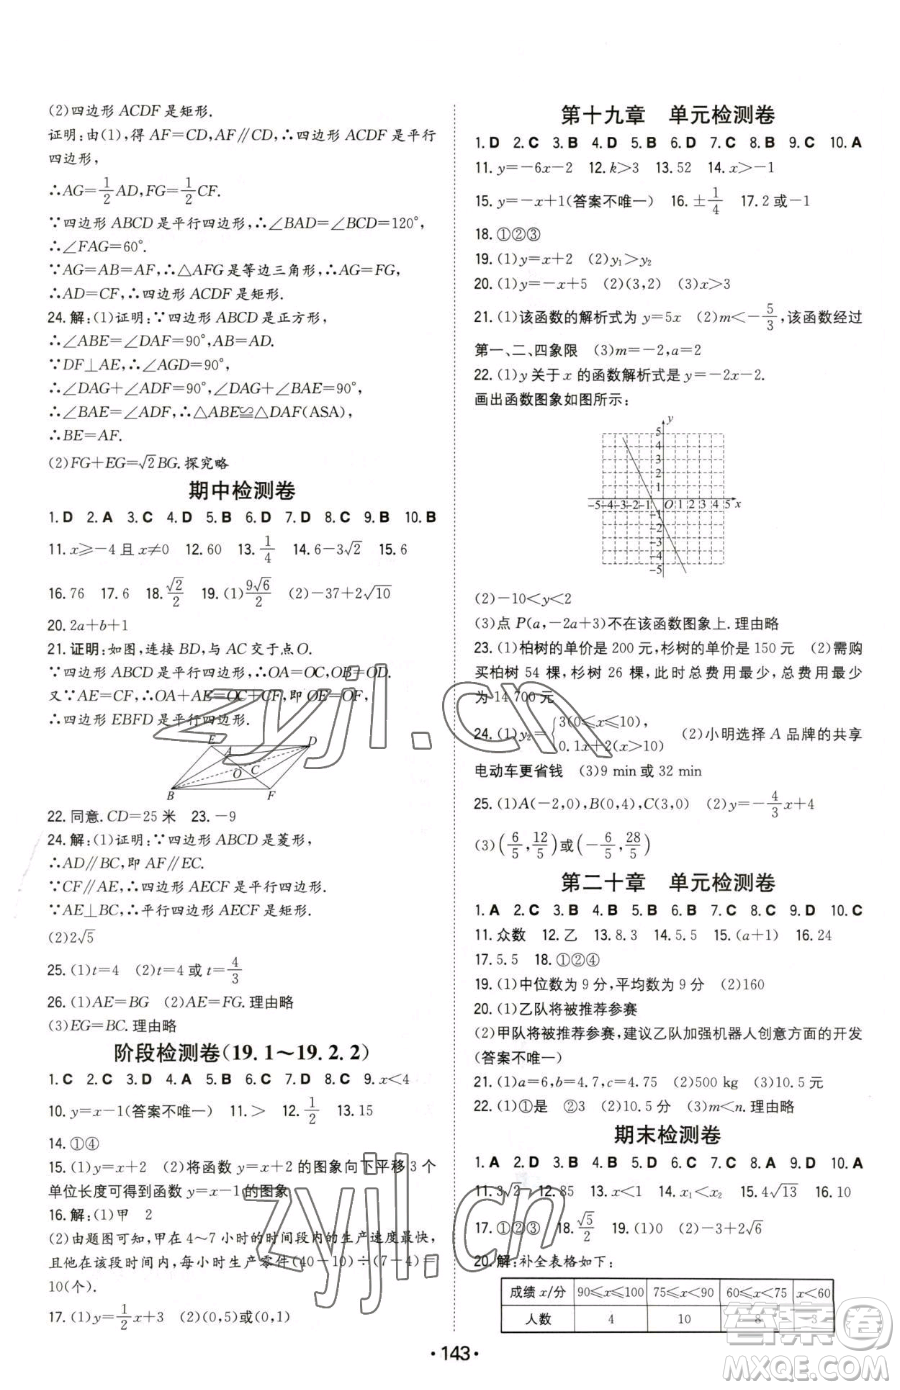 (2)四边形 ACDF 是矩形.
证明:由(1),得 AF=CD,AF∥CD,∴四边形 ACDF 是平行
四边形,
∴AG=1/2AD,FG=1/2CF.
∵四边形 ABCD 是平行四边形,∴∠BAD=∠BCD=120°,
∴∠FAG=60°.
∵AG=AB=AF,∴△AFG是等边三角形,∴AG=FG,
∴AD=CF,∴四边形 ACDF 是矩形.
24.解:(1)证明:∵四边形 ABCD 是正方形,
∴∠ABE=∠DAF=90°,AB=AD.
∵DF⊥AE,∴∠AGD=90°,
∴∠DAG+∠ADF=∠DAG+∠BAE=90°,
∴∠BAE=∠ADF,∴△ABE≌△DAF(ASA),
∴BE=AF.
(2)FG+EG=√2BG.探究略
期中检测卷
1.D 2.A 3.C 4.D 5.B 6.D 7.D 8.C 9.B 10.B
11.x≥-4且x≠0 12.60 13.1/4 14.6-3√2 15.6
16.76 17.6 18.√2/2 19.(1)9√6/2 (2)-37+2√10
20.2a+b+1
21.证明:如图,连接 BD,与 AC 交于点O.
∵四边形 ABCD 是平行四边形,∴OA=OC,OB=OD.
又∵AE=CF,∴OA+AE=OC+CF,即 OE=OF,
∴四边形 EBFD 是平行四边形.
E A D
O C
B F
22.同意.CD=25米 23.-9
24.解:(1)证明:∵四边形 ABCD 是菱形,
∴AD∥BC,即 AF∥EC.
∵CF∥AE,∴四边形 AECF 是平行四边形.
∵AE⊥BC,∴平行四边形 AECF 是矩形.
(2)2√5
25.(1)t=4 (2)t=4或t=4/3
26.(1)AE=BG (2)AE=FG.理由略
(3)EG=BC.理由略
阶段检测卷(19.1～19.2.2)
1.C 2.C 3.D 4.A 5.B 6.C 7.D 8.C 9.x<4
10.y=x-1(答案不唯一) 11.> 12.1/2 13.15
14.①④
15.(1)y=x+2 (2)将函数 y=x+2 的图象向下平移 3 个
单位长度可得到函数 y=x-1 的图象
16.解:(1)甲 2
(2)由题图可知,甲在 4～7 小时的时间段内的生产速度最快,
且他在该段时间内,每小时生产零件(40-10)÷(7-4)=
10(个).
17.(1)y=1/2x+3 (2)(0,5)或(0,1)
第十九章 单元检测卷
1.D 2.C 3.B 4.D 5.B 6.D 7.C 8.B 9.C 10.A
11.y=-6x-2 12.k>3 13.52 14.x>-1
15.y=-x+1(答案不唯一) 16.±1/4 17.2或-1
18.①②③
19.(1)y=x+2 (2)y₁>y₂
20.(1)y=-x+5 (2)(3,2) (3)x>3
21.(1)该函数的解析式为 y=5x (2)m<-5/3,该函数经过
第一、二、四象限 (3)m=-2,a=2
22.(1)y关于x的函数解析式是 y=-2x-2.
画出函数图象如图所示:
y
5
4
3
2
1
-5-4-3-2-1 O 1 2 3 4 5 x
-1
-2
-3
-4
-5
(2)-10<y<2
(3)点 P(a,-2a+3)不在该函数图象上.理由略
23.(1)柏树的单价是 200 元,杉树的单价是 150 元 (2)需购
买柏树 54 棵,杉树 26 棵,此时总费用最少,总费用最少
为 14 700 元
24.(1)y₂={3(0≤x≤10), 0.1x+2(x>10) (2)小明选择 A 品牌的共享
电动车更省钱 (3)9 min或32 min
25.(1)A(-2,0),B(0,4),C(3,0) (2)y=-4/3x+4
(3)(6/5,12/5)或(-6/5,28/5)
第二十章 单元检测卷
1.A 2.C 3.B 4.D 5.B 6.B 7.C 8.C 9.D 10.C
11.众数 12.乙 13.8.3 14.5.5 15.(a+1) 16.24
17.5.5 18.①②④
19.(1)中位数为 9 分,平均数为 9 分 (2)160
20.(1)乙队将被推荐参赛
(2)甲队将被推荐参赛,建议乙队加强机器人创意方面的开发
(答案不唯一)
21.(1)a=6,b=4.7,c=4.75 (2)500 kg (3)10.5元
22.(1)①是 ②3 (2)10.5分 (3)m<n.理由略
期末检测卷
1.A 2.C 3.B 4.C 5.B 6.A 7.D 8.D 9.B 10.A
11.3√2 12.85 13.x<1 14.x₁<x₂ 15.4√13 16.10
17.①②③ 18.√5/2 19.(1)0 (2)-3+2√2
20.解:补全表格如下:
成绩 x/分 90≤x≤100 75≤x<90 60≤x<75 x<60
人数 4 10 8 3
·143·
zyjl.cn
zyjl.cn
答案圈
MXQE.COM